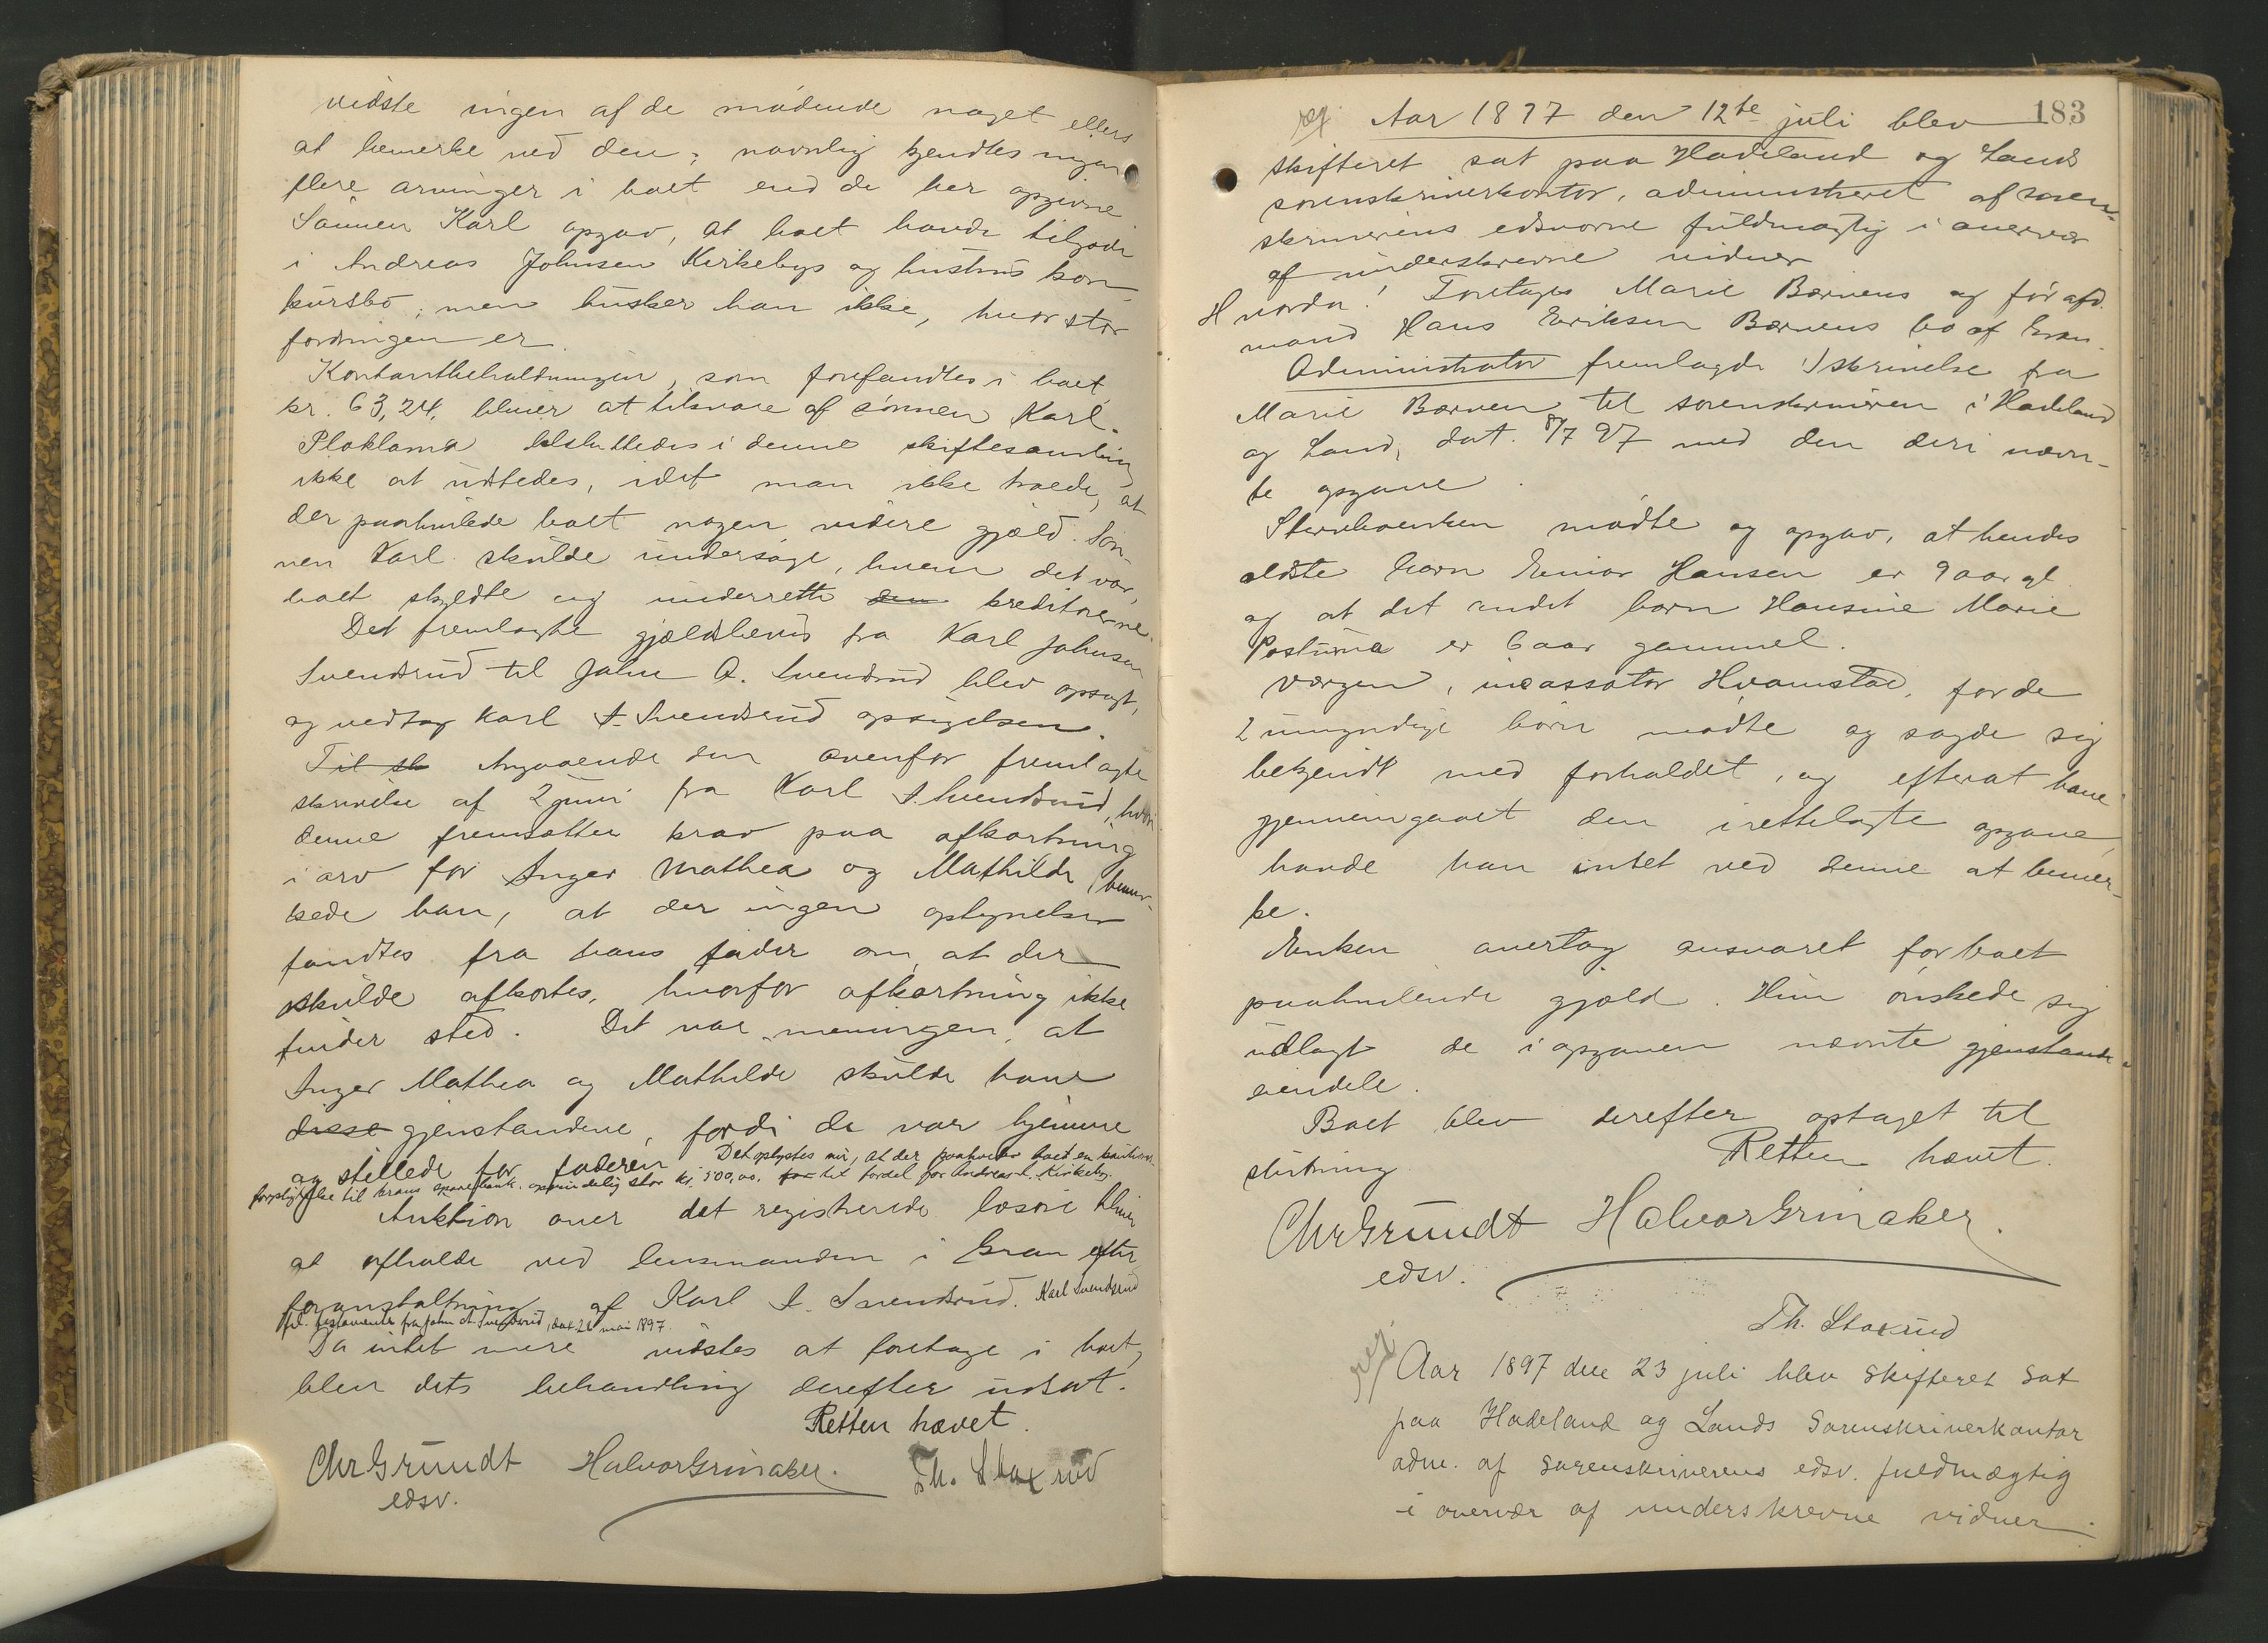 vidste ingen af de mødende noget ellers
at bemerke ved den; navnlig kjendtes ingen
flere arvinger i boet end de her opgivne
Sønnen Karl opgav, at boet havde tilgode
i Andreas Johnsen Kirkebys og hustrus kon-
kursbo; men husker han ikke, hvor stor
fordringen er.
Kontantbeholdningen, som forefandtes i boet,
kr. 63,24, bliver at tilsvare af sønnen Karl.
Ploklama besluttedes i denne skiftesamling
ikke at udstedes, idet man ikke troede, at
der paahvilede boet nogen videre gjæld. Søn-
nen Karl skulde undersøge, hvem det var,
boet skyldte og underrette den kreditorerne.
Det fremlagte gjældsbevis fra Karl Johnsen
Svendsrud til John A. Svendsrud blev opsagt,
og vedtog Karl J. Svendsrud opsigelsen.
Til sk Angaaende den ovenfor fremlagte
skrivelse af 2 juni fra Karl J. Svendsrud, hvori
denne fremsatter krav paa afkortning
i arv for Inger Mathea og Mathilde bemer-
kede han, at der ingen oplysnelser
fandtes fra hans fader om, at der
skulde afkortes, hvorfor afkortning ikke
finder sted. Det var meningen, at
Inger Mathea og Mathilde skulde have
disse gjenstandene, fordi de var hjemme
og stellede for faderen. Det oplystes nu, at der paahviler boet en kautions-
forpligtelse til Grans sparebank, oprindelig stor kr. 500,00, for til fordel for Andreas J. Kirkeby.
Auktion over det registrerede løsøre bliver
at afholde ved lensmanden i Gran efter
foranstaltning af Karl J. Svendsrud. Karl Svendsrud
frl. testamente fra John A. Svendsrud, dat. 26 mai 1897.
Da intet mere vidstes at foretage i boet,
blev dets behandling derefter udsat.
Retten hævet.
Chr Grundt Halvor Grinaker. Th. Staxrud
edsv.
183
reg Aar 1897 den 12te juli blev
skifteret sat paa Hadeland og Lands
sorenskriverkontor, administreret af soren-
skriverens edsvorne fuldmægtig i overvær
af underskrevne vidner
Hvorda! Foretages Marie Bærvens og før afd.
mand Hans Eriksen Bærvens bo af Gran.
Administrator fremlagde 1) skrivelse fra
Marie Bærven til sorenskriveren i Hadeland
og Land, dat. 8/7 97 med den deri nævn-
te opgave.
Stervboenken mødte og opgav, at hendes
ældste barn Einar Hansen er 9 aar gl.
og at det andet barn Hansine Marie
Postuma er 6 aar gammel.
Værgen, incassator Hvamstad, for de
2 umyndige børn mødte og sagde sig
bekjendt med forholdet, og efterat have
gjennemgaaet den irettelagte opgave,
havde han intet ved denne at bemer-
ke.
Enken overtog ansvaret for boet
paahvilende gjæld. Hun ønskede sig
udlagt de i opgaven nævnte gjenstande
eiendele.
Boet blev derefter optaget til
slutning Retten hævet.
Chr Grundt Halvor Grinaker.
edsv.
Th. Staxrud
reg. Aar 1897 den 23 juli blev skifteret sat
paa Hadeland og Lands Sorenskriverkontor
adm. af sorenskriverens edsv. fuldmægtig
i overvær af underskrevne vidner.